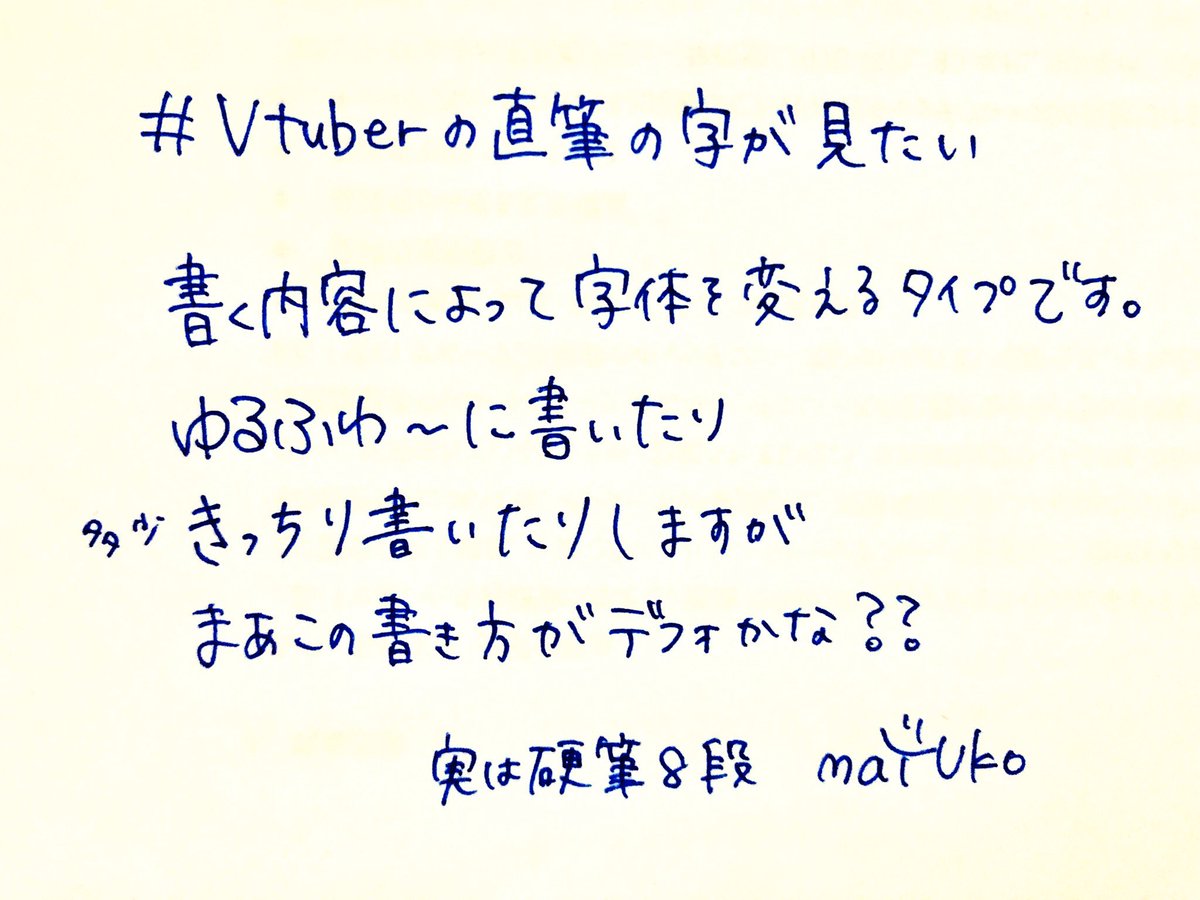 #Vtuberの直筆の字が見たい
書く内容によって字体を変えるタイプです。
ゆるふわ～に書いたり
きっちり書いたりしますが
まあこの書き方がデフォかな??
実は硬筆8段 maiyuko